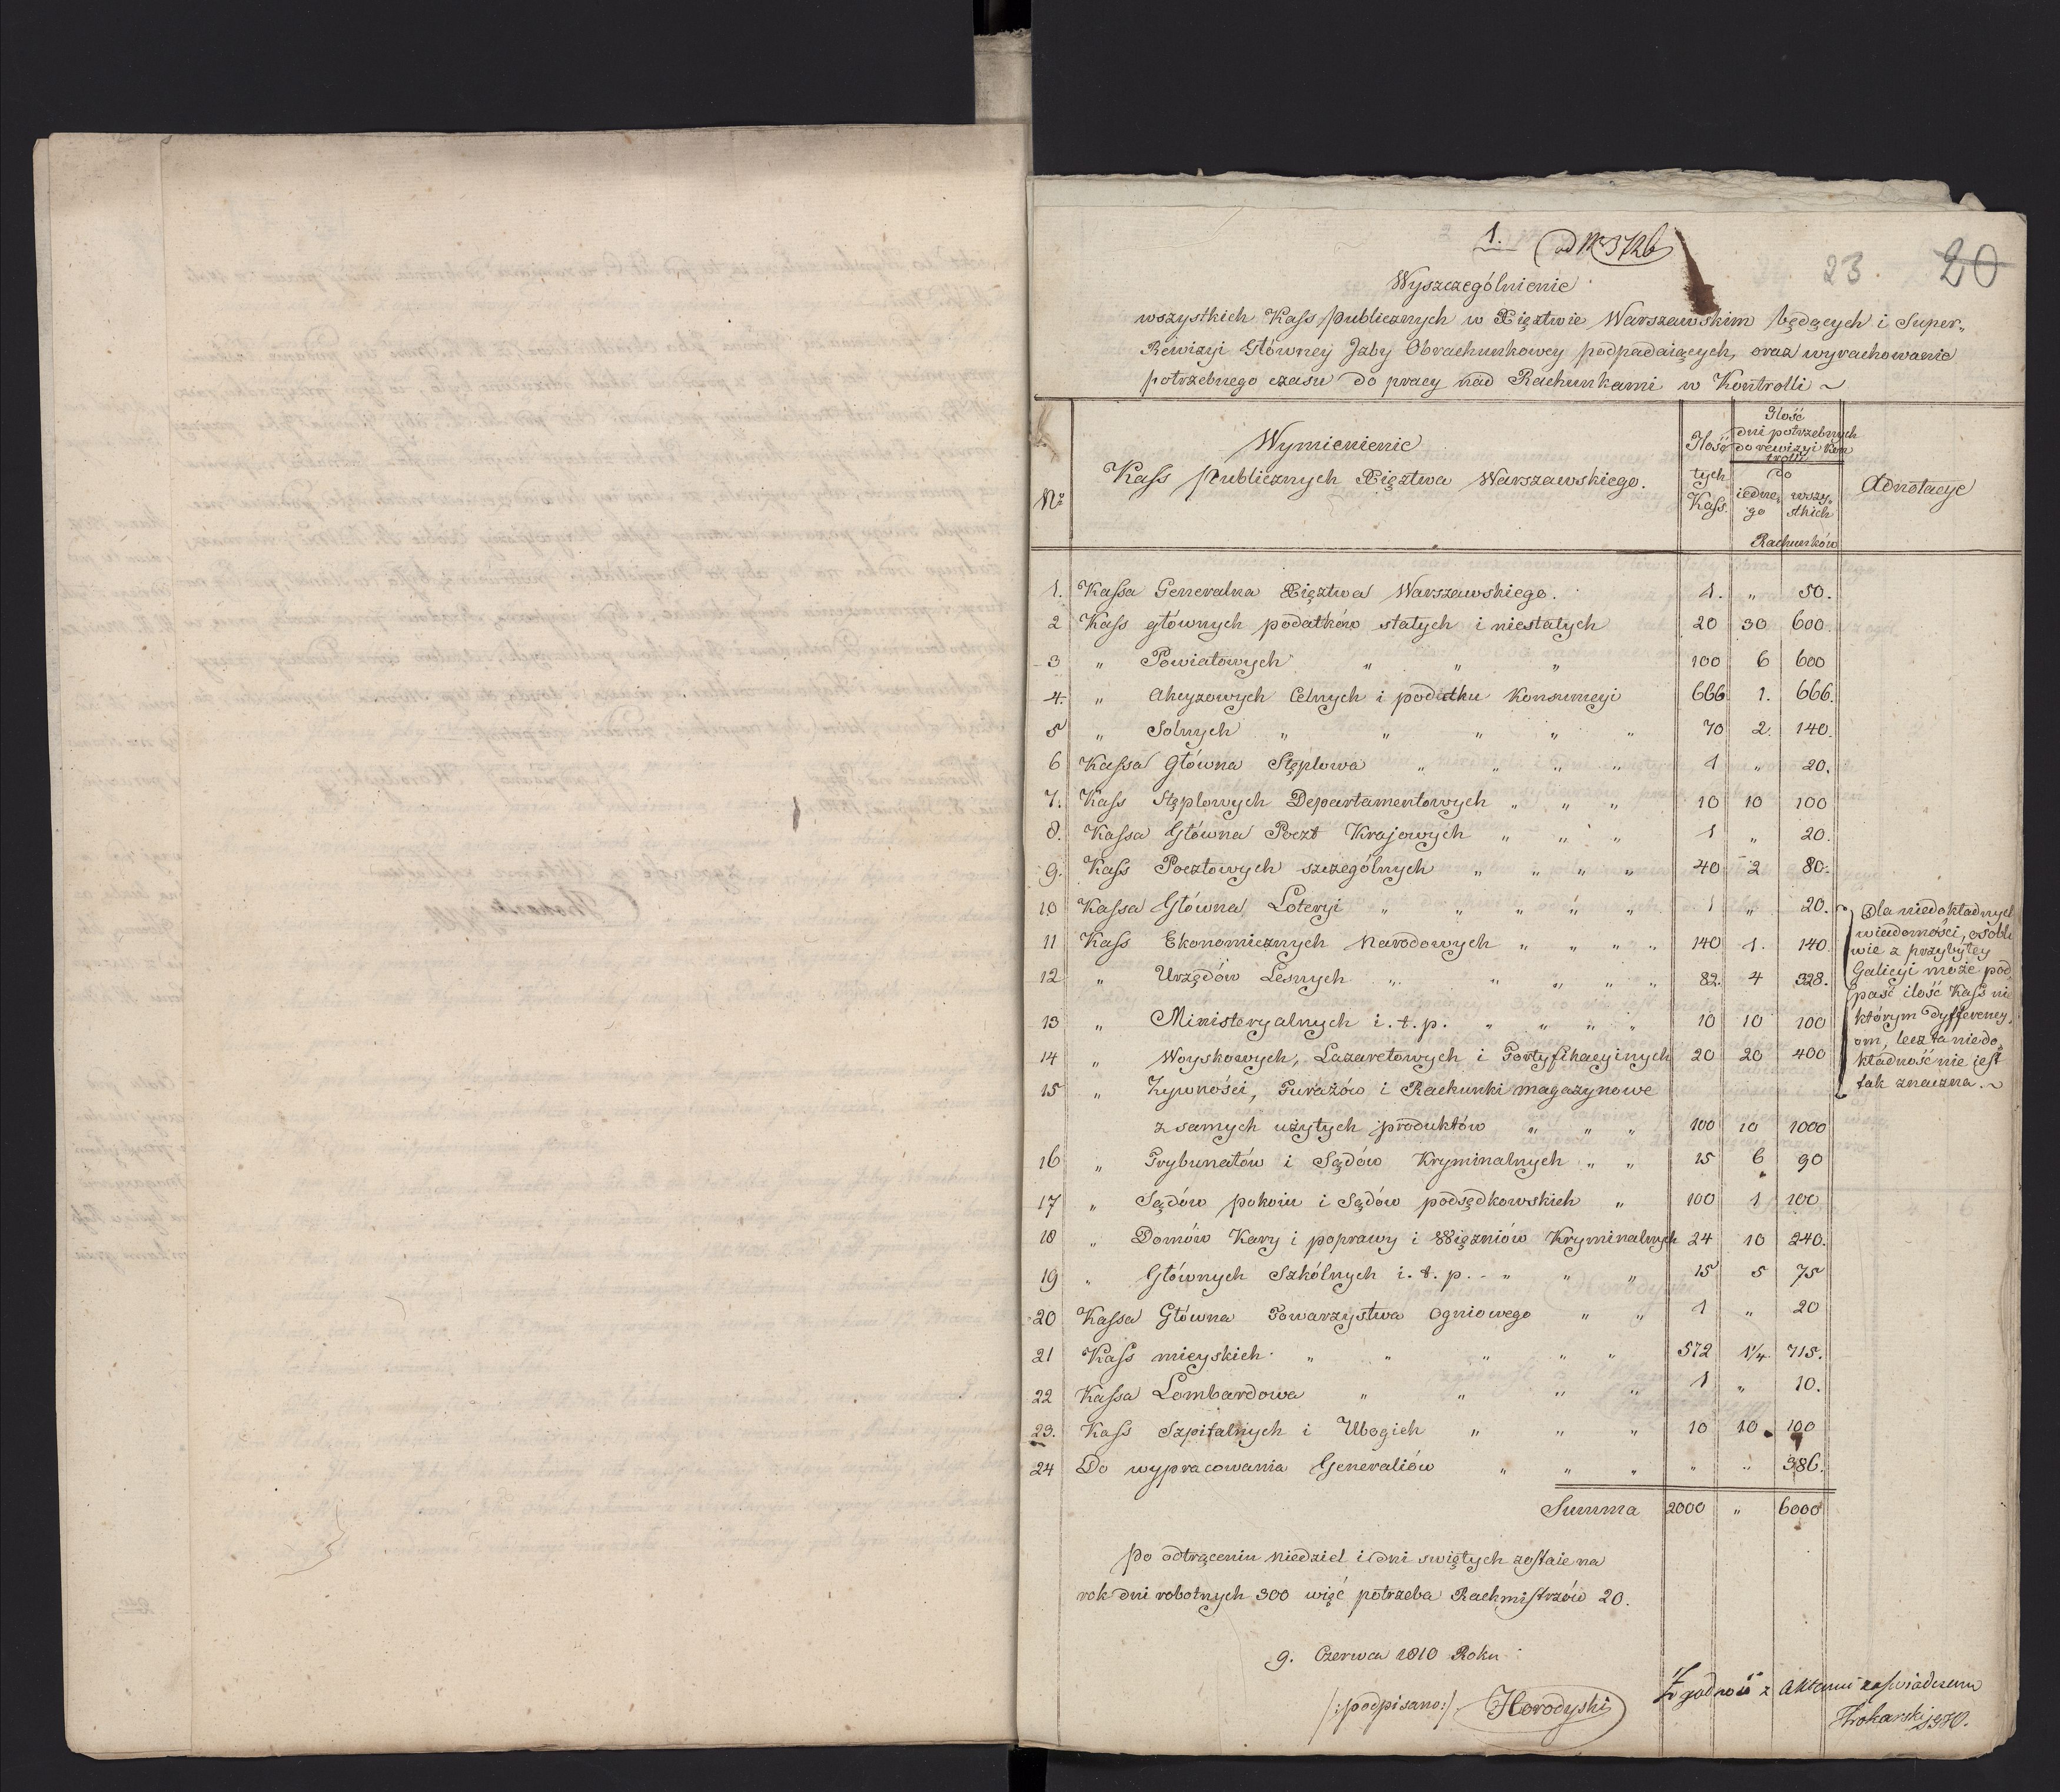 1. ad Nr 3726
23. 20
Wyszczególnienie
wszystkich Kass publicznych w Xięztwie Warszawskim będących i Super„
Rewizyi Główney Jzby Obrachunkowey podpadaiących, oraz wyrachowanie
potrzebnego czasu do pracy nad Rachunkami w Kontrolli ~
No
Wymienienie
Kass publicznych Xięztwa Warszawskiego.
Ilość tych Kass.
Ilość dni potrzebnych do rewizyi Kon trolli
do
iedne„ go
wszy„ stkich
Rachunków
Adnotacye
1. Kassa Generalna Xięztwa Warszawskiego. 1. „ 50.
2 Kass głównych podatków stałych i niestałych 20 30 600.
3 „ Powiatowych „ „ „ 100 6 600
4. „ Akcyzowych Celnych i podatku Konsumcyi 666 1. 666.
5 „ Solnych „ „ „ „ „ 70 2. 140.
6 Kassa Główna Stęplowa „ „ „ „ 1 „ 20.
7. Kass Stęplowych Departamentowych „ „ „ 10 10 100
8. Kassa Główna Poczt Krajowych „ „ „ 1 „ 20.
9. Kass Pocztowych szczególnych „ „ „ „ 40 2 80.
10 Kassa Główna Loteryi „ „ „ „ „ 1 „ 20.
11 Kass Ekonomicznych Narodowych „ „ „ „ 140 1. 140.
12 „ Urzędów Lesnych „ „ „ „ „ 82. 4 328.
13 „ Ministeryalnych i. t. p. „ „ „ „ 10 10 100
14 „ Woyskowych, Lazaretowych i Fortyfikacyinych 20 20 400
15 „ Żywności, Furażów i Rachunki magazynowe
z samych użytych produktów „ „ „ 100 10 1000
16 „ Trybunałów i Sądów Kryminalnych „ „ 15 6 90
17 „ Sądów pokoiu i Sądów podsędkowskich „ 100 1 100
18 „ Domów Kary i poprawy i Więzniów Kryminalnych 24 10 240.
19 „ Głównych Szkólnych i. t. p. „ „ „ 15 5 75
20 Kassa Główna Towarzystwa Ogniowego „ „ 1 „ 20
21 Kass mieyskich „ „ „ „ „ 572 1 1/4 715.
22 Kassa Lombardowa „ „ „ „ 1 „ 10.
23. Kass Szpitalnych i Ubogich „ „ „ 10 10 100
24 Do wypracowania Generaliów „ „ „ „ „ 386.
Summa 2000 „ 6000
Dla niedokładnych
wiadomości, osobli
wie z przybyłey
Galicyi może pod
paść ilość Kass nie
którym dyfferency„
om, lecz ta niedo„
kładność nie jest
tak znaczna. ~
po odtrąceniu niedziel i dni swiętych zostaie na
rok dni robotnych 300 więc potrzeba Rachmistrzów 20.
9. Czerwca 1810 Roku
/:podpisano:/ Horodyski
Zgodność z Aktami zaświadczam